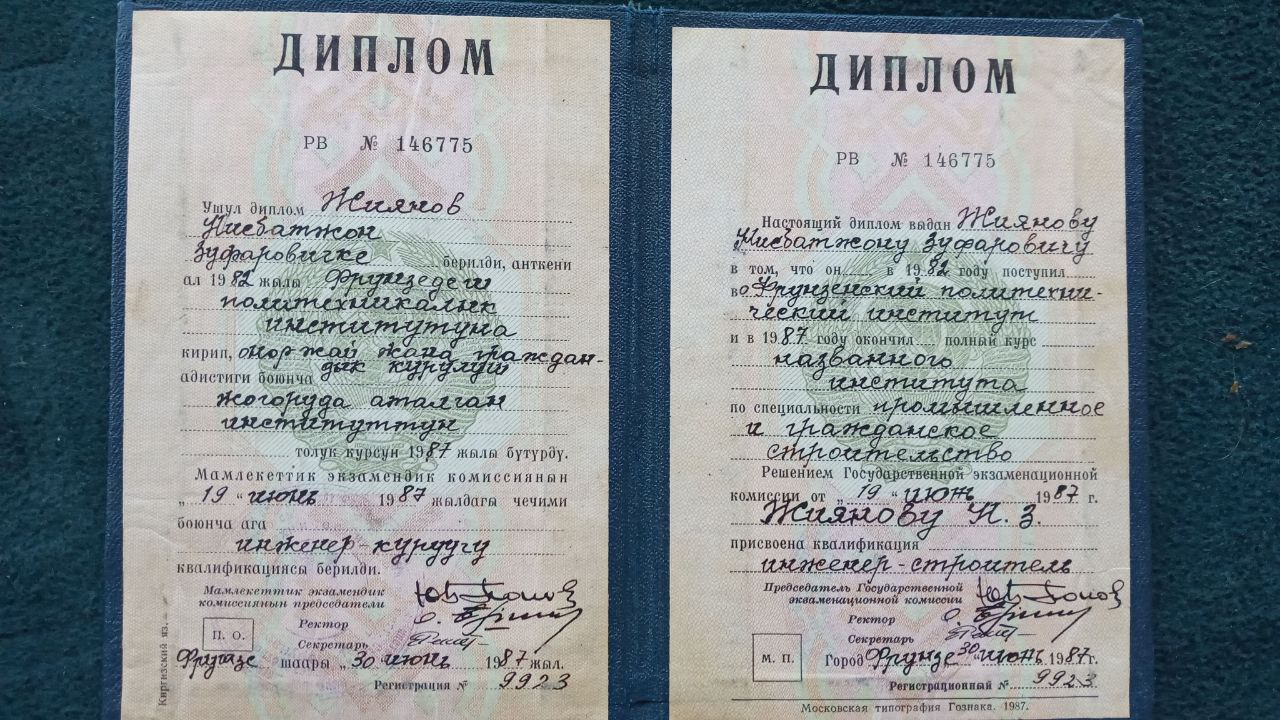 ДИПЛОМ
РВ № 146775
Ушул диплом Жиянов
Нисбатжон
Зуфаровичке берилди, анткени
ал 1982 жылы Фрунзедеги
политехникалык
институтуна
кирип, өнөр жай жана граждан-
дык курулуш
адистиги боюнча
жогоруда аталган
институттун
толук курсун 1987 жылы бүтүрдү.
Мамлекеттик экзамендик комиссиянын
„19“ июнь 1987 жылдагы чечими
боюнча ага
инженер-куруучу
квалификациясы берилди.
Мамлекеттик экзамендик
комиссиянын председатели
Ректор
Секретарь
П. О.
Фрунзе шаары „30 июнь 1987 жыл.
Регистрация № 9923
Киргизский яз.
ДИПЛОМ
РВ № 146775
Настоящий диплом выдан Жиянову
Нисбатжону Зуфаровичу
в том, что он в 1982 году поступил
во Фрунзенский политехни-
ческий институт
и в 1987 году окончил полный курс
названного
института
по специальности промышленное
и гражданское
строительство
Решением Государственной экзаменационной
комиссии от „19“ июня 1987 г.
Жиянову Н. З.
присвоена квалификация
инженер-строитель
Председатель Государственной
экзаменационной комиссии
Ректор
Секретарь
М. П.
Город Фрунзе 30 “июнь 1987г.
Регистрационный № 9923
Московская типография Гознака. 1987.